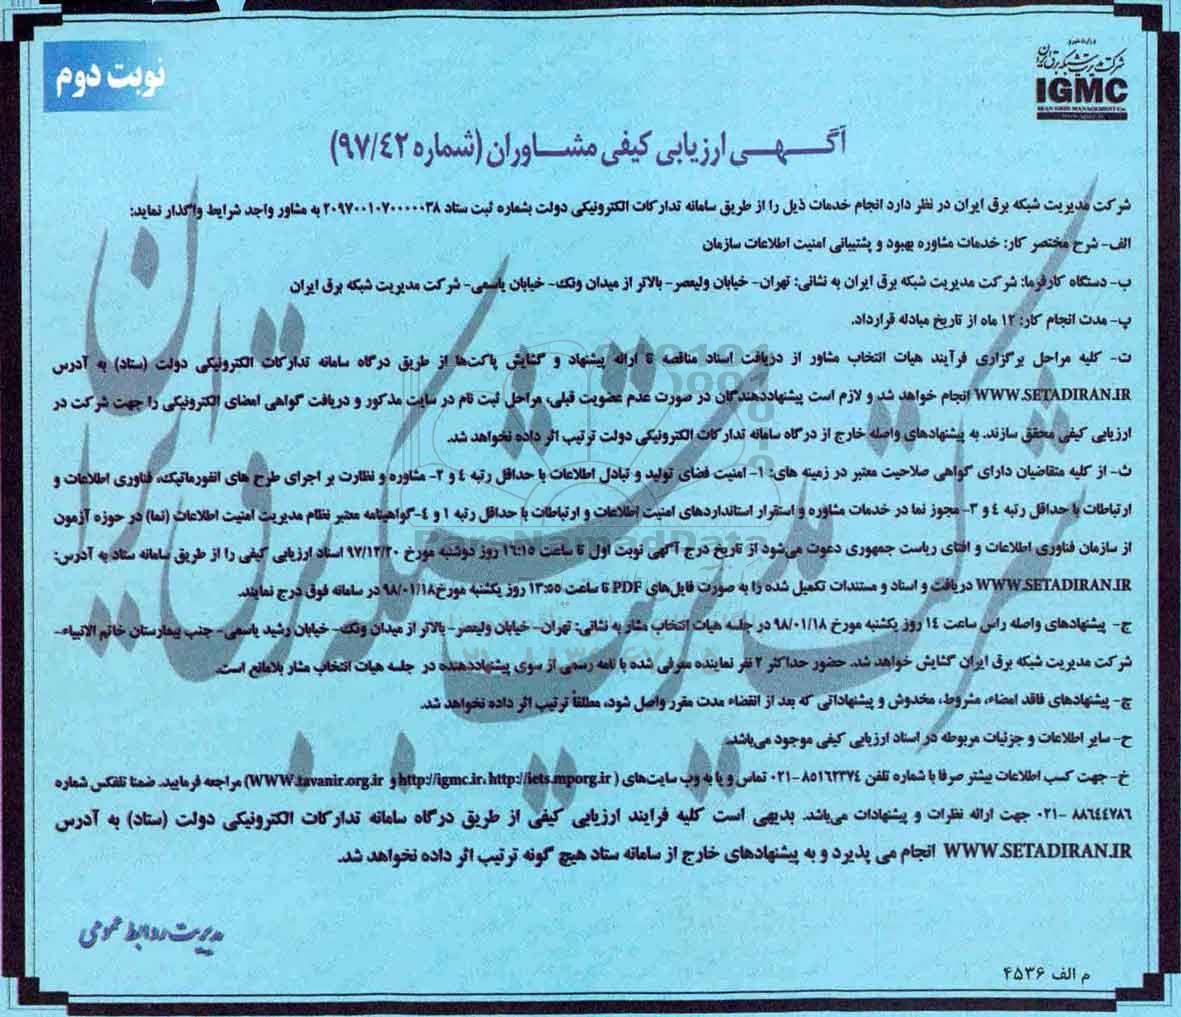 نوبت دوم
شرکت مدیریت شبکه برق ایران
IGMC
IRAN GRID MANAGEMENT Co.
آگـهـی ارزیابی کیفی مشـاوران (شماره ۹۷/۴۲)
شرکت مدیریت شبکه برق ایران در نظر دارد انجام خدمات ذیل را از طریق سامانه تدارکات الکترونیکی دولت بشماره ثبت ستاد ۲۰۹۷۰۰۱۰۷۰۰۰۰۰۳۸ به مشاور واجد شرایط واگذار نماید:
الف- شرح مختصر کار: خدمات مشاوره بهبود و پشتیبانی امنیت اطلاعات سازمان
ب- دستگاه کارفرما: شرکت مدیریت شبکه برق ایران به نشانی: تهران- خیابان ولیعصر- بالاتر از میدان ونک- خیابان یاسمی- شرکت مدیریت شبکه برق ایران
پ- مدت انجام کار: ۱۲ ماه از تاریخ مبادله قرارداد.
ت- کلیه مراحل برگزاری فرآیند هیات انتخاب مشاور از دریافت اسناد مناقصه تا ارائه پیشنهاد و گشایش پاکت‌ها از طریق درگاه سامانه تدارکات الکترونیکی دولت (ستاد) به آدرس
WWW.SETADIRAN.IR انجام خواهد شد و لازم است پیشنهاددهندگان در صورت عدم عضویت قبلی، مراحل ثبت نام در سایت مذکور و دریافت گواهی امضای الکترونیکی را جهت شرکت در
ارزیابی کیفی محقق سازند. به پیشنهادهای واصله خارج از درگاه سامانه تدارکات الکترونیکی دولت ترتیب اثر داده نخواهد شد.
ث- از کلیه متقاضیان دارای گواهی صلاحیت معتبر در زمینه های: ۱- امنیت فضای تولید و تبادل اطلاعات با حداقل رتبه ٤ و ۲- مشاوره و نظارت بر اجرای طرح های انفورماتیک، فناوری اطلاعات و
ارتباطات با حداقل رتبه ٤ و ۳- مجوز نما در خدمات مشاوره و استقرار استانداردهای امنیت اطلاعات و ارتباطات با حداقل رتبه ۱ و ٤-گواهینامه معتبر نظام مدیریت امنیت اطلاعات (نما) در حوزه آزمون
از سازمان فناوری اطلاعات و افتای ریاست جمهوری دعوت می‌شود از تاریخ درج آگهی نوبت اول تا ساعت ۱۶:۱۵ روز دوشنبه مورخ ۹۷/۱۲/۲۰ اسناد ارزیابی کیفی را از طریق سامانه ستاد به آدرس:
WWW.SETADIRAN.IR دریافت و اسناد و مستندات تکمیل شده را به صورت فایل‌های PDF تا ساعت ۱۳:۵۵ روز یکشنبه مورخ ۹۸/۰۱/۱۸ در سامانه فوق درج نمایند.
ج- پیشنهادهای واصله راس ساعت ۱۴ روز یکشنبه مورخ ۹۸/۰۱/۱۸ در جلسه هیات انتخاب مشار به نشانی: تهران- خیابان ولیعصر- بالاتر از میدان ونک- خیابان رشید یاسمی- جنب بیمارستان خاتم الانبیاء-
شرکت مدیریت شبکه برق ایران گشایش خواهد شد. حضور حداکثر ۲ نفر نماینده معرفی شده با نامه رسمی از سوی پیشنهاددهنده در جلسه هیات انتخاب مشار بلامانع است.
چ- پیشنهادهای فاقد امضاء، مشروط، مخدوش و پیشنهاداتی که بعد از انقضاء مدت مقرر واصل شود، مطلقاً ترتیب اثر داده نخواهد شد.
ح- سایر اطلاعات و جزئیات مربوطه در اسناد ارزیابی کیفی موجود می‌باشد.
خ- جهت کسب اطلاعات بیشتر صرفا با شماره تلفن ۸۵۱۶۲۳۷٤-۰۲۱ تماس و یا به وب سایت‌های (http://igmc.ir، http://iets.mporg.ir و WWW.tavanir.org.ir) مراجعه فرمایید. ضمنا تلفکس شماره
۸۸٦٤٤۷۸٦ -۰۲۱ جهت ارائه نظرات و پیشنهادات می‌باشد. بدیهی است کلیه فرایند ارزیابی کیفی از طریق درگاه سامانه تدارکات الکترونیکی دولت (ستاد) به آدرس
WWW.SETADIRAN.IR انجام می پذیرد و به پیشنهادهای خارج از سامانه ستاد هیچ گونه ترتیب اثر داده نخواهد شد.
مدیریت روابط عمومی
م الف ۴۵۳۶
شرکت مدیریت شبکه برق ایران
ParsNamadData